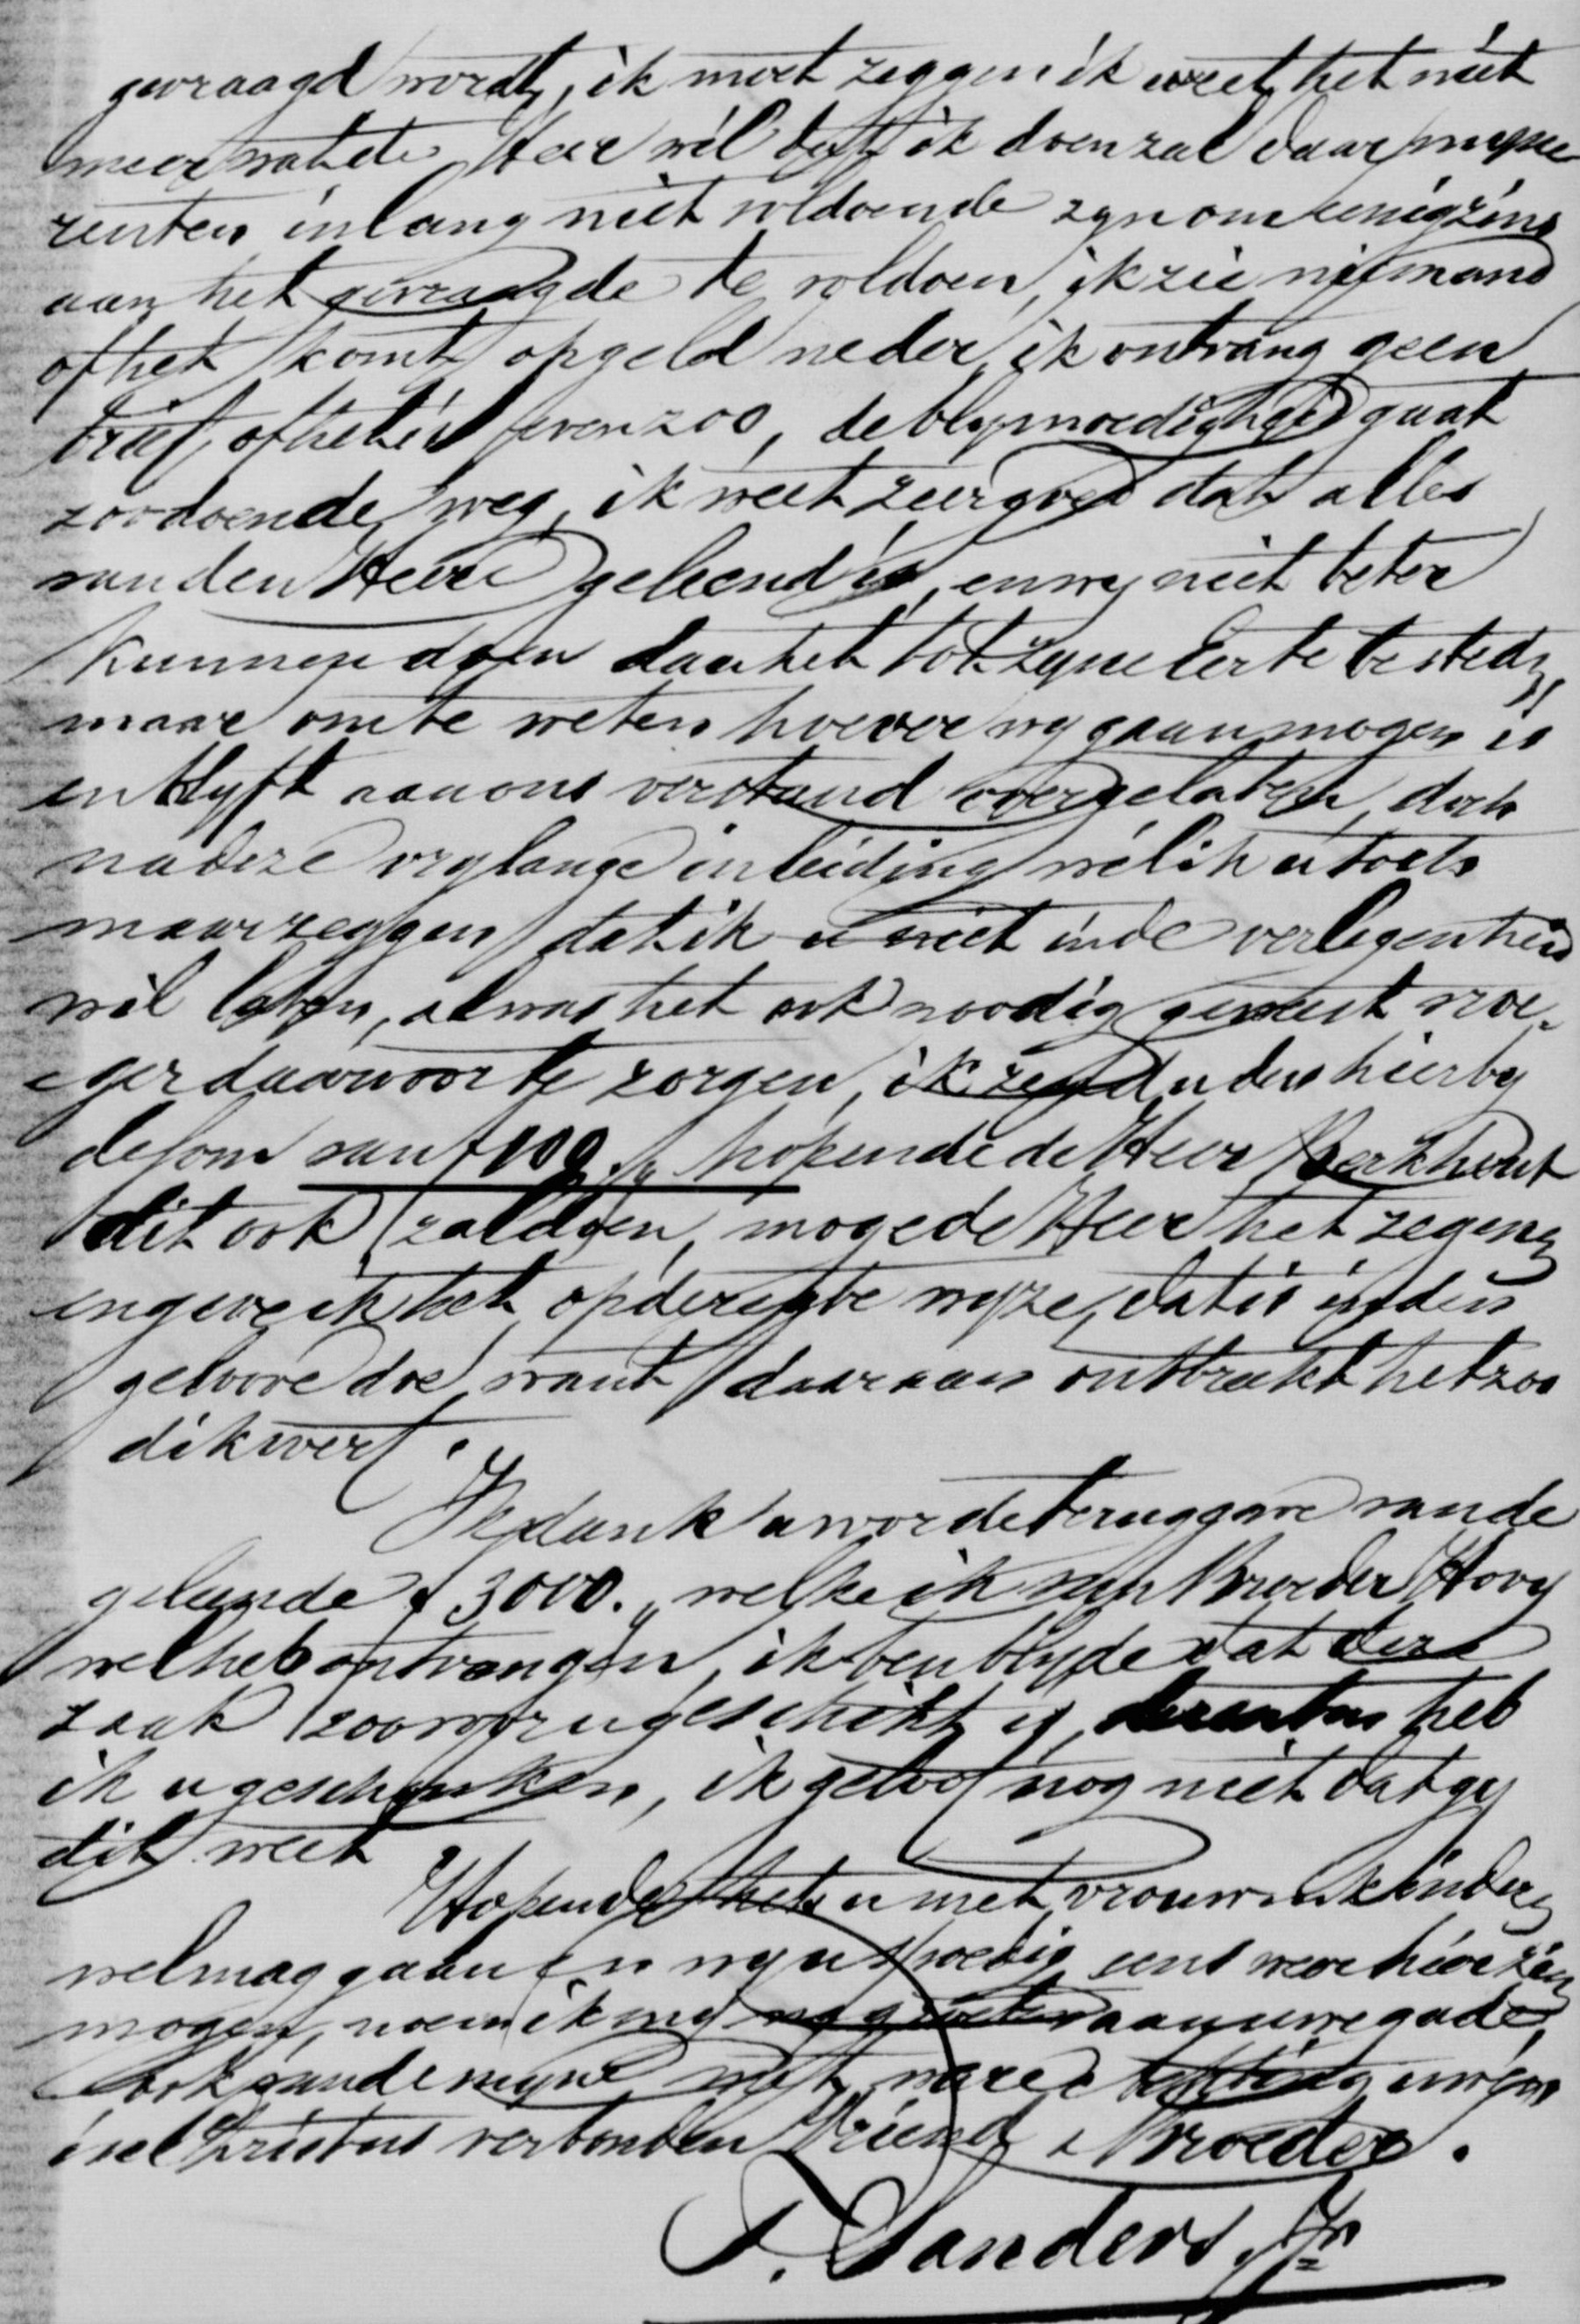 gevraagd wordt, ik moet zeggen ik weet het niet
meer wat de Heer wil dat ik doen zal daar myne
renten inlang niet voldoende zyn om eenigzins
aan het gevraagde te voldoen, ik zie niemand
of het komt op geld neder, ik ontvang geen
brief of het is evenzoo, de blymoedigheid gaat
zoodoende weg, ik weet zeer goed dat alles
van den Heere geleend is, en wy niet beter
kunnen doen dan het tot Zyne Eer te besteden,
maar om te weten hoever wy gaan mogen is
en blyft aan ons verstand overgelaten, doch
na deze vry lange inleiding wil ik u toch
maar zeggen dat ik u niet in de verlegenheid
wil laten, al was het ook noodig geweest vroe-
ger daarvoor te zorgen, ik zend u dus hierby
de som van f 100.- hopende de Heer Berkhout
dit ook zal doen, moge de Heer het zegenen
en geve ik het op de regte wyze, dat is in den
geloove doe, want daaraan ontbreekt het zoo
dikwerf.
Ik dank u voor de teruggave van de
geleende f 3000.- welke ik van Broeder Hovy
wel heb ontvangen, ik ben blyde dat deze
zaak zoo voor u geschikt is, de renten heb
ik u geschonken, ik geloof nog niet dat gy
dit weet
Hopende het u met vrouw en kinderen
wel mag gaan en wy u spoedig eens weer hier zien
mogen, noem ik my na groeten aan uwe gade,
ook van de myne met ware achting uw een
in Christus verbonden Vriend & Broeder.
P. Sanders Jr